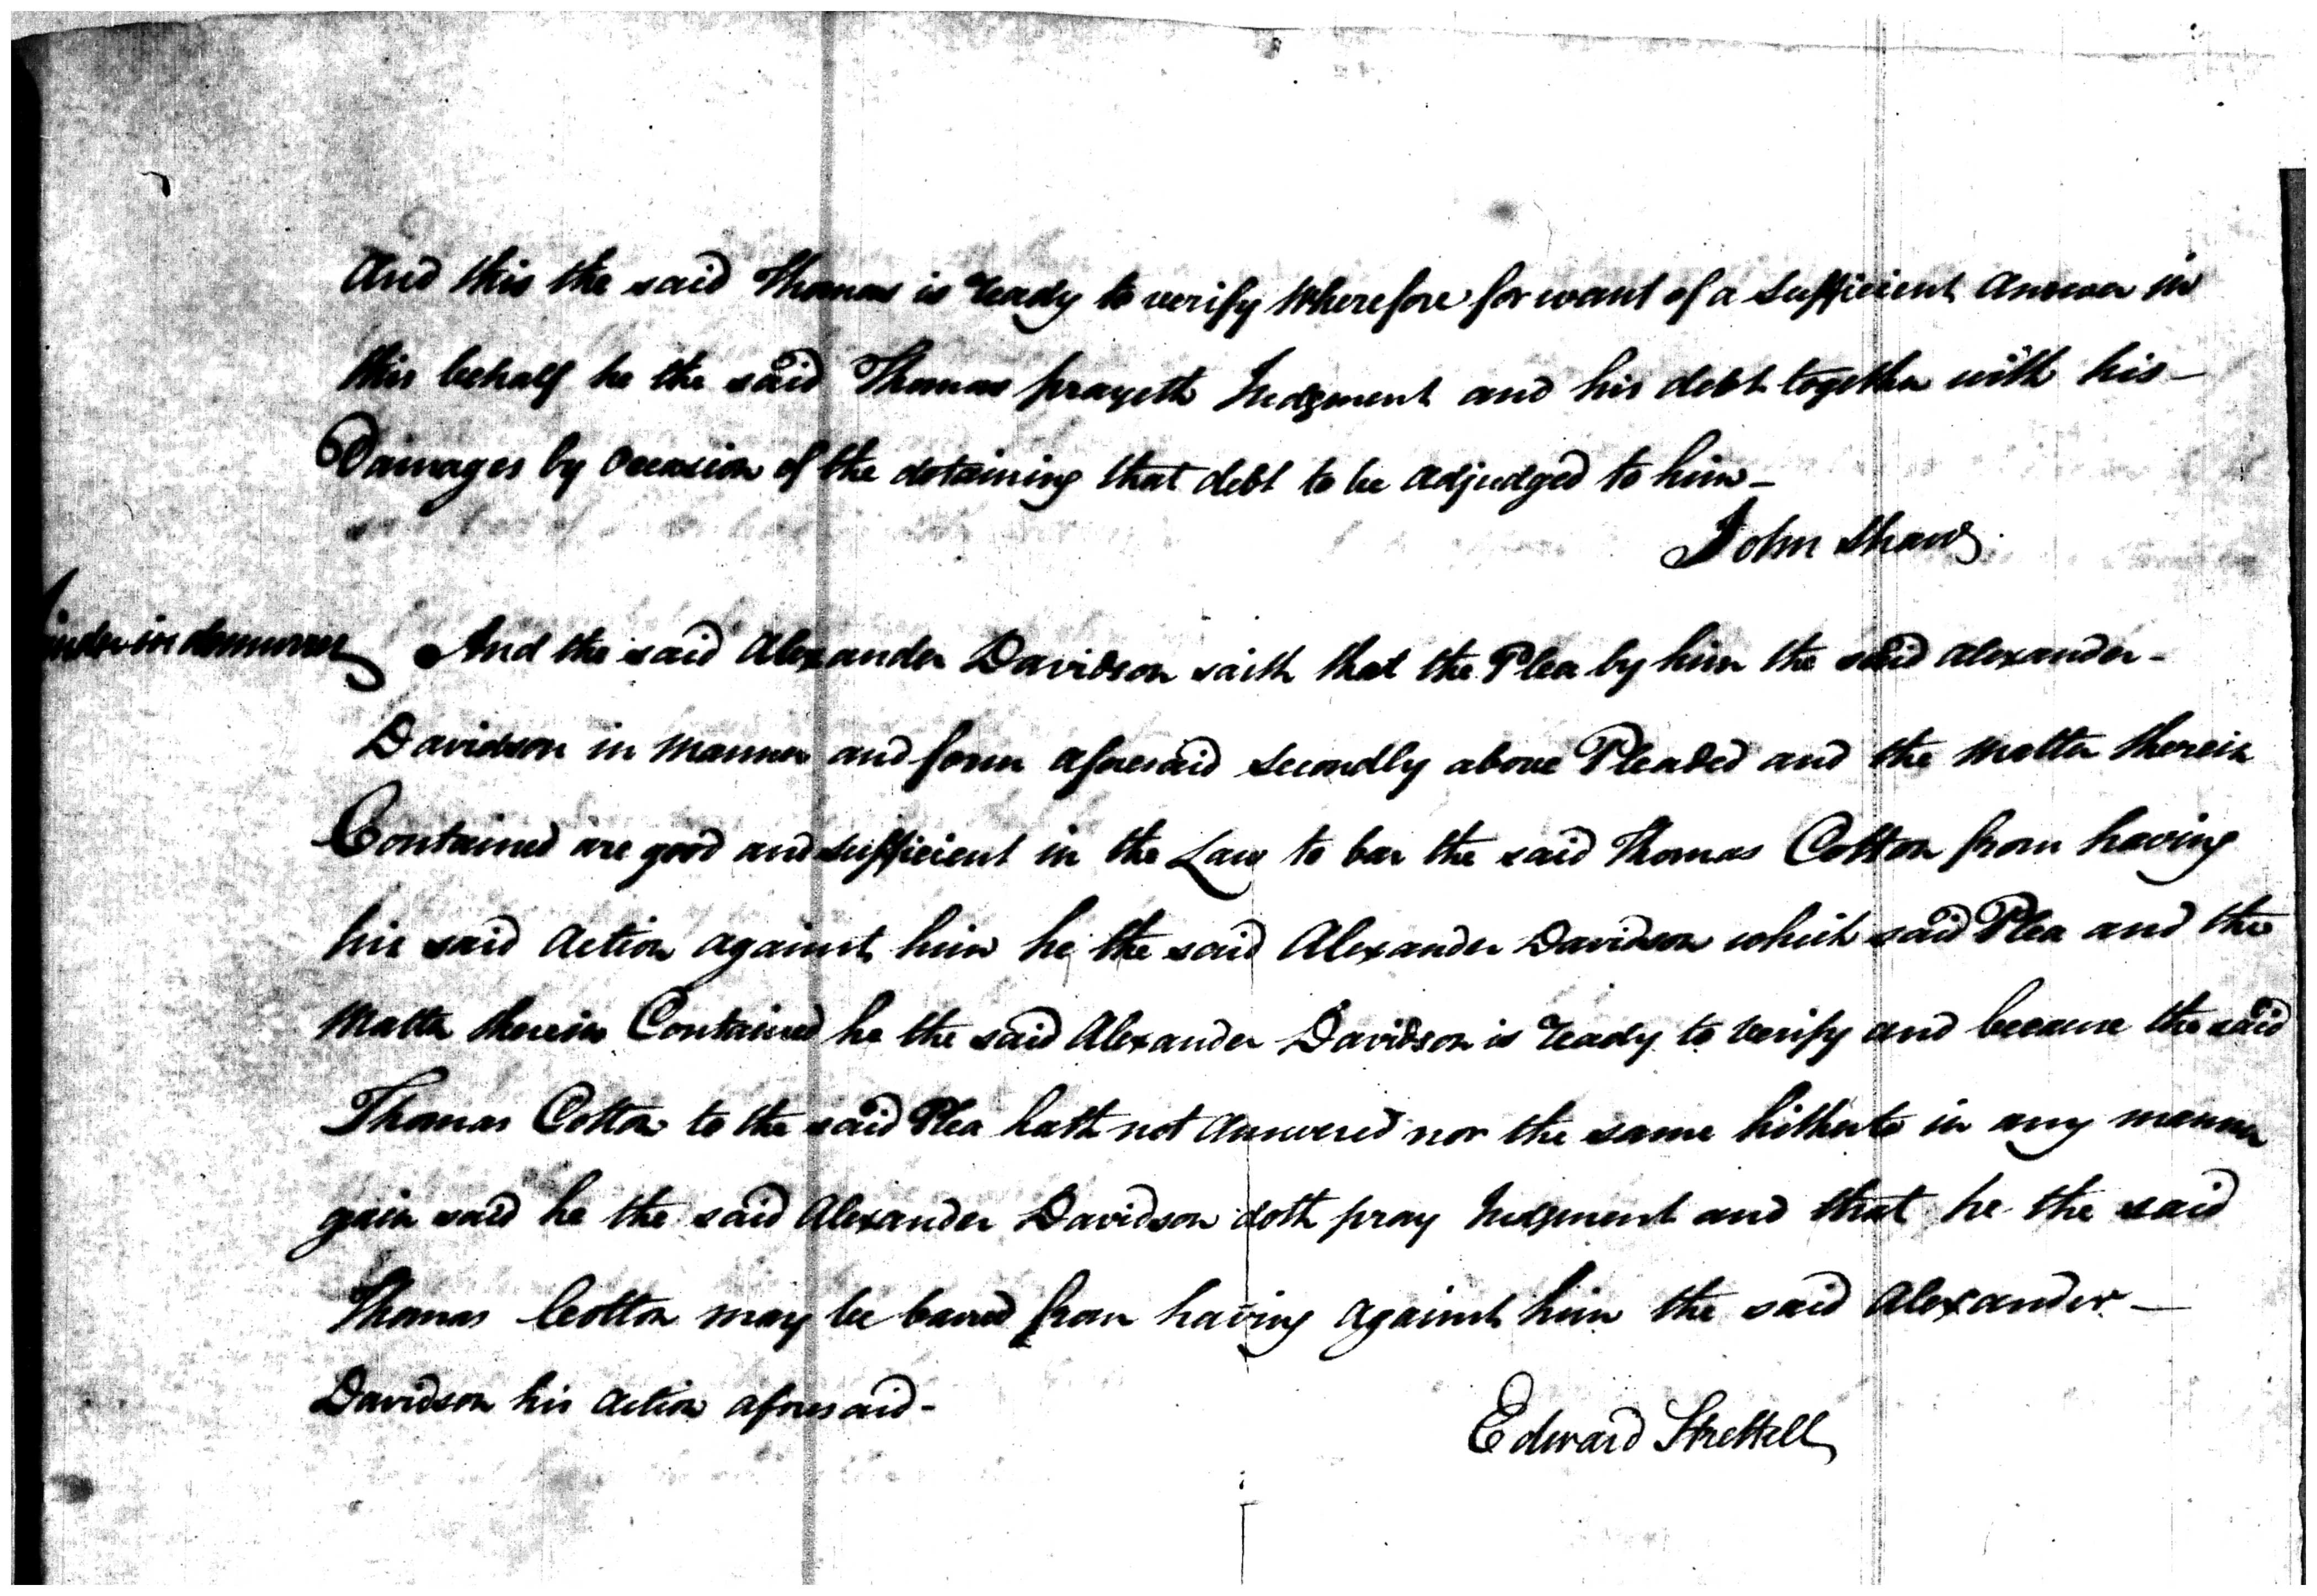 And this the said Thomas is ready to verify Wherefore for want of a sufficient Answer in
this behalf he the said Thomas prayeth Judgment and his debt together with his -
Damages by Occasion of the detaining that debt to be adjudged to him -
John Shaw
inder in demurrer And the said Alexander Davidson saith that the Plea by him the said Alexander -
Davidson in Manner and form aforesaid Secondly above Pleaded and the Matter therein
Contained are good and sufficient in the Law to bar the said Thomas Cotton from having
his said Action against him he the said Alexander Davidson which said Plea and the
Matter therein Contained he the said Alexander Davidson is ready to verify and because the said
Thomas Cotton to the said Plea hath not Answered nor the same hitherto in any manner
gain said he the said Alexander Davidson doth pray Judgment and that he the said
Thomas Cotton may be barred from having against him the said Alexander -
Davidson his Action aforesaid -
Edward Strettell